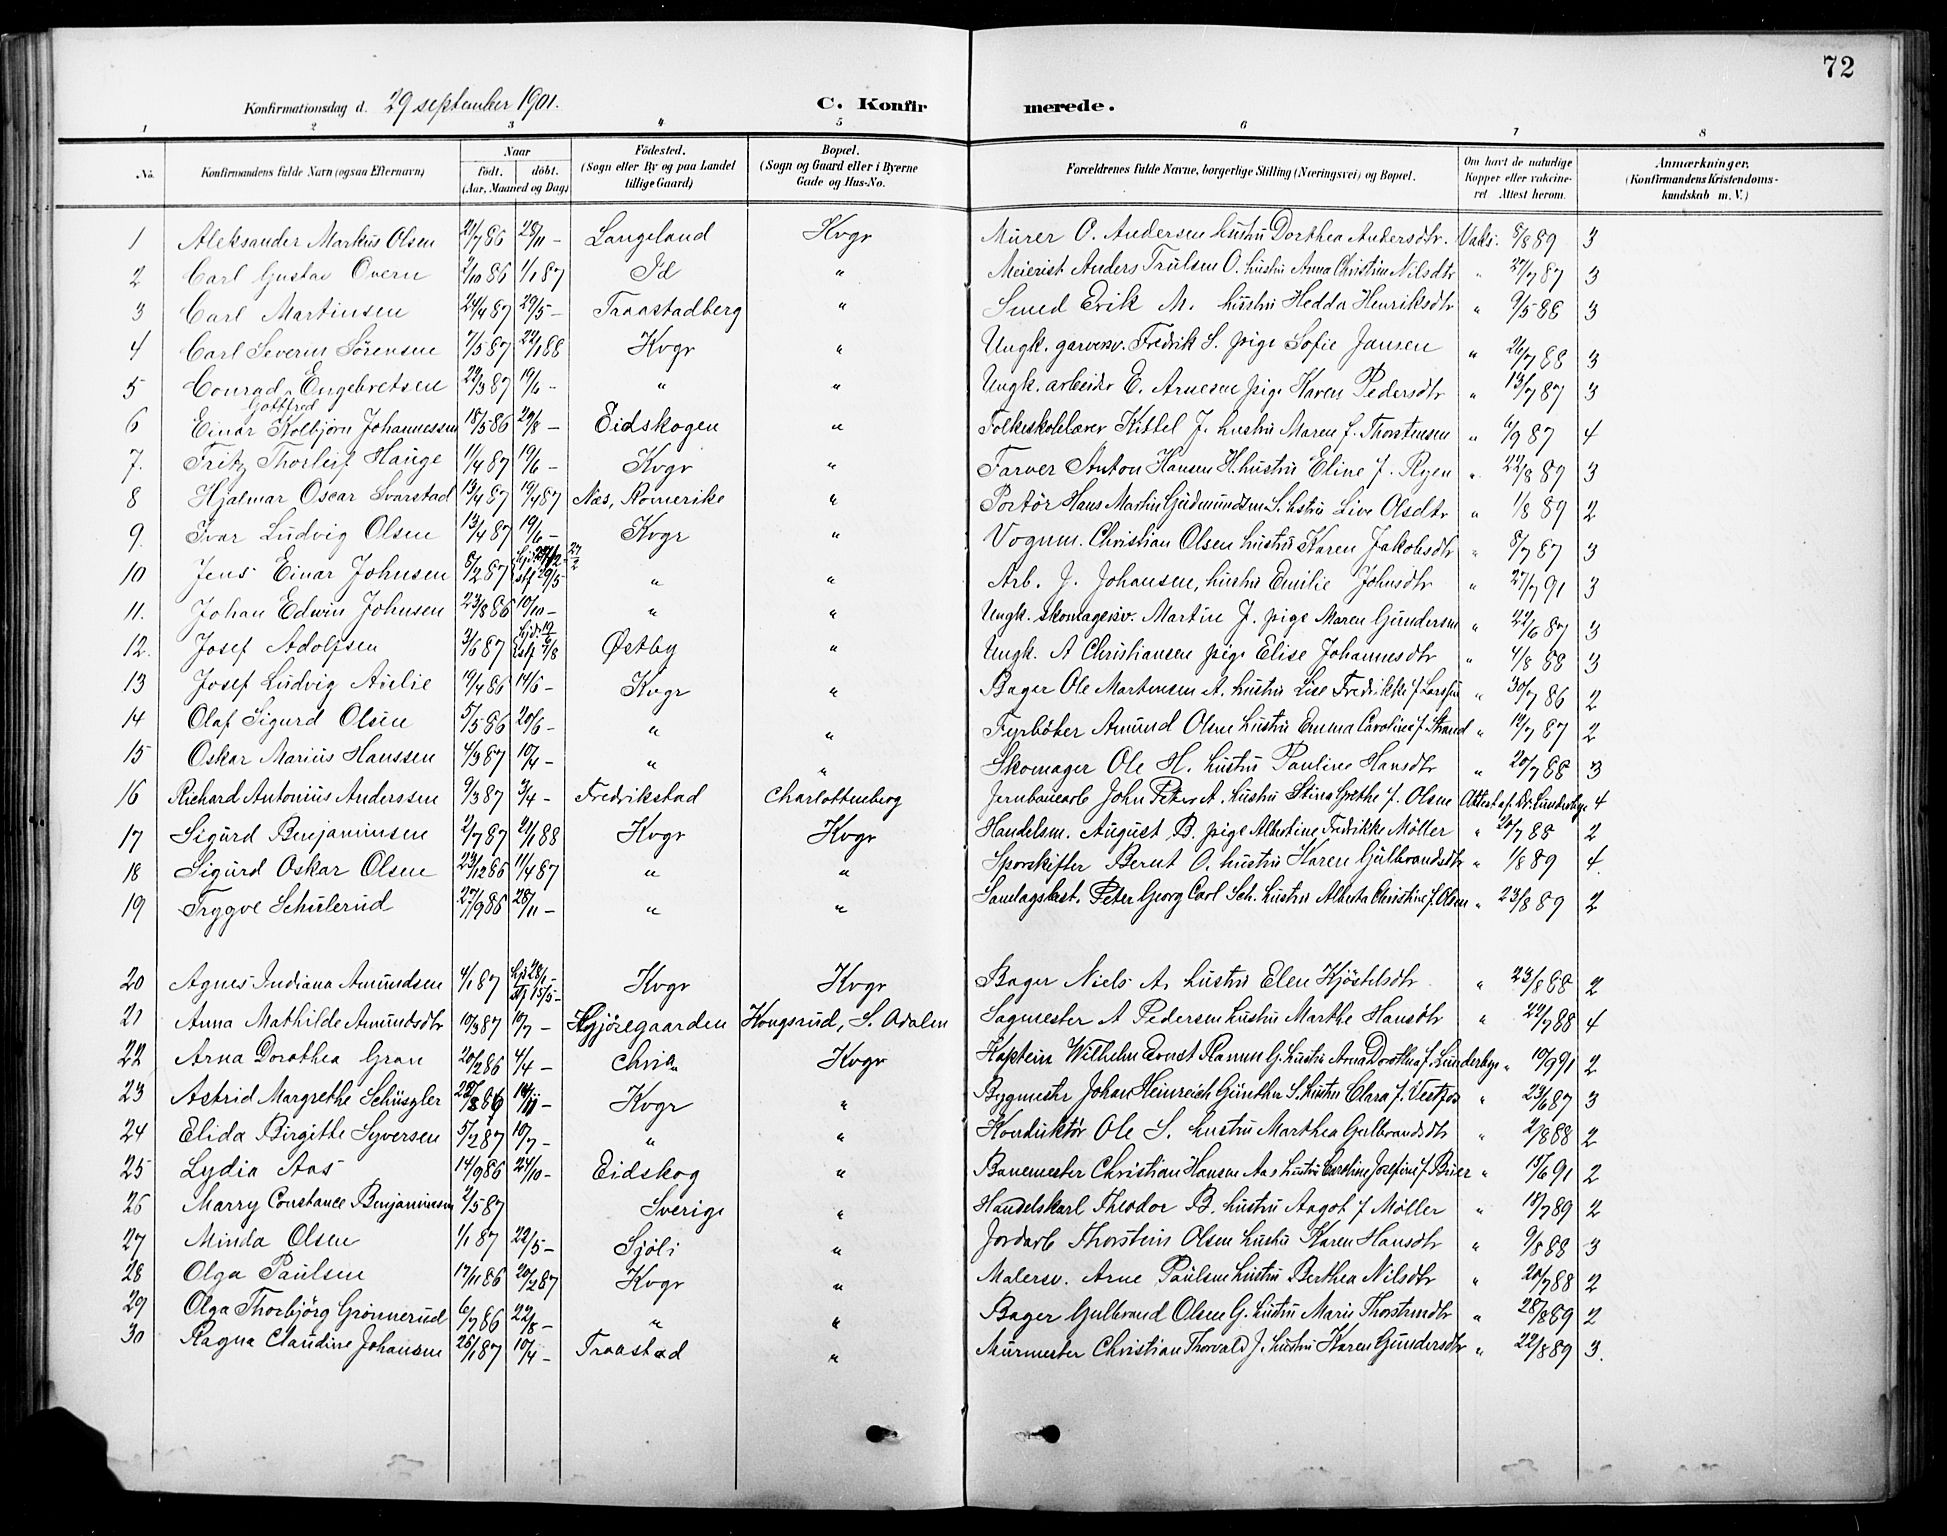 72
Konfirmationsdag d. 29 september 1901. C. Konfir merede.
1 2 3 4 5 6 7 8
No. Konfirmandens fulde Navn (ogsaa Efternavn) Naar födt. döbt. (Aar, Maaned og Dag) Födested. (Sogn eller By og paa Landet tillige Gaard) Bopæl. (Sogn og Gaard eller i Byerne Gade og Hus-No. Forældrenes fulde Navne, borgerlige Stilling (Næringsvei) og Bopæl. Om havt de naturlige Kopper eller vakcineret Attest herom. Anmærkninger, (Konfirmandens Kristendomskundskab m. V.)
1 Aleksander Markus Olsen 21/7 86 28/11 – Langeland Kvgr Murer O. Andersen hustru Dorthea Andersdtr. Vaks. 8/8 89 3
2 Carl Gustav Overn 2/10 86 1/1 87 Id " Meierist Anders Trulsen O. hustru Anna Christine Nilsdtr " 27/7 87 3
3 Carl Martinsen 24/4 87 29/5 – Traastadberg " Smed Erik M. hustru Hedda Henriksdtr " 9/5 88 3
4 Carl Severin Sörensen 7/5 87 22/1 88 Kvgr " Ungk. garversv. Fredrik S. pige Sofie Jansen " 26/7 88 3
5 Conrad Engebretsen 22/3 87 19/6 – " " Ungk. arbeider E. Arnesen pige Karen Pedersdtr " 13/7 87 3
Gottfred
6 Einar Kolbjørn Johannessen 18/5 86 29/8 – Eidskogen " Folkeskolelærer Kittel J. hustru Maren f. Thorstensen " 6/9 87 4
7. Fritz Thorleif Hauge 11/4 87 19/6 – Kvgr " Farver Anton Hansen H. hustru Eline f. Ryen " 22/8 87 3
8 Hjalmar Oscar Svarstad 13/4 87 19/4 87 Næs, Romerike " Portör Hans Martin Gudmundsen S. hstru Live Olsdtr " 1/8 89 2
9. Ivar Ludvig Olsen 13/4 87 19/6 – Kvgr " Vognm. Christian Olsen hustru Karen Jakobsdtr " 8/7 87 3
10 Jens Einar Johnsen 8/2 87 29/5 " " Arb. J. Johansen, hustru Emilie Johnsdtr " 27/7 91 3
11. Johan Edwin Johnsen 23/8 86 10/10 – " " Ungk. skomagersv. Martin J. pige Maren Gundersen " 22/6 87 3
12. Josef Adolfsen 3/6 87 hjd. 19/6 Østby " Ungk. A Christiansen pige Elise Johannesdtr " 4/8 88 3
13 Josef Ludvig Aulie 19/4 86 14/6 – Kvgr " Bager Ole Martensen A. hustru Lise Fredrikke f. Larsen " 30/7 86 2
14 Olaf Sigurd Olsen 5/5 86 20/6 – " " Fyrböter Amund Olsen hustru Emma Caroline f. Strand " 12/7 87 2
15 Oskar Marius Hanssen 4/3 87 10/4 – " " Skomager Ole H. hustru Pauline Hansdtr " 20/7 88 3
16 Richard Antonius Anderssen 9/3 87 3/4 – Fredrikstad Charlottenberg Jernbanearb John Peter A. hustru Stina Grethe f. Olsen Attest af Dr. Lunderbye 4
17 Sigurd Benjaminsen 2/7 87 29/1 88 Kvgr Kvgr Handelsm. August B. pige Albertine Fredrikke Möller " 20/7 88 2
18 Sigurd Oskar Olsen 23/12 86 11/4 87 " " Sporskifter Bernt O. hustru Karen Gulbrandsdtr " 1/8 89 4.
19 Trygve Schulerud 27/9 86 28/11 – " " Peter Georg Carl Sch. hustru Alberta Christine f. Olsen " 23/8 89 2
20 Agnes Indiana Amundsen 4/1 87 hjd 28/1 stf 15/5 – Kvgr Kvgr Bager Niels A. hustru Elen Kjöstelsdtr " 23/8 88 2
21 Anna Mathilde Amundsdtr 10/3 87 10/7 – Skjöregaarden Kongsrud, S. Odalen Sagmester A Pedersen hustru Marthe Hansdtr " 22/7 88 4
22 Arna Dorothea Gran 20/2 86 4/4 – Chria Kvgr Kaptein Wilhelm Ernst Ramm G. hustru Arna Dorothea f. Lunderbye " 10/9 91 2
23 Astrid Margrethe Schüssler 14/11 – Kvgr " Bygmestr Johan Heinreich Günther S. hustru Clara f. Vestfos " 23/6 87 3
24 Elida Birgitte Syversen 5/2 87 10/7 – " " Konduktør Ole S. hustru Marthea Gulbrandsdtr " 2/8 88 2
25 Lydia Aas 14/9 86 24/10 – Eidskog " Banemester Christian Hansen Aas hustru Caroline Josefine f. Buer " 15/6 91 2
26 Marry Constance Benjaminsen 2/5 87 Sverige " Handelskarl Theodor B. hustru Aagot f Møller " 12/7 89 2
27 Minda Olsen 1/1 87 22/5 – Sjöli " Jordarb Thorstein Olsen hustru Karen Hansdtr " 9/8 88 3
28 Olga Paulsen 17/11 86 20/2 87 Kvgr " Malersv. Arne Paulsen hustru Berthea Nilsdtr " 20/7 88 2
29 Olga Thorbjörg Grönnerud 6/7 86 22/8 – " " Bager Gulbrand Olsen G. hustru Marie Thorstensdtr " 28/8 89 2
30 Ragna Claudine Johansen 26/1 87 10/4 – Traastad " Murmester Christian Thorvald J. hustru Karen Gundersdtr " 22/8 89 3.